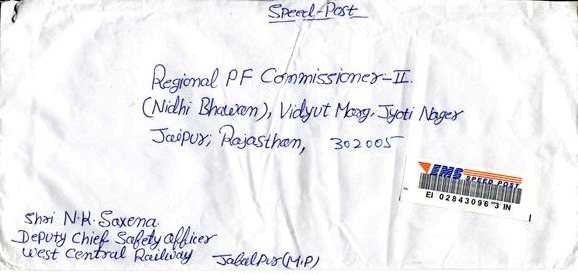 Speed-Post
Regional PF Commissioner-II.
(Nidhi Bhawan), Vidyut Marg, Jyoti Nager
Jaipur, Rajasthan, 302005
EMS SPEED POST
EI 02843096 3 IN
Shri N.K. Saxena
Deputy Chief Safety Officer
West Central Railway Jabalpur (M.P)